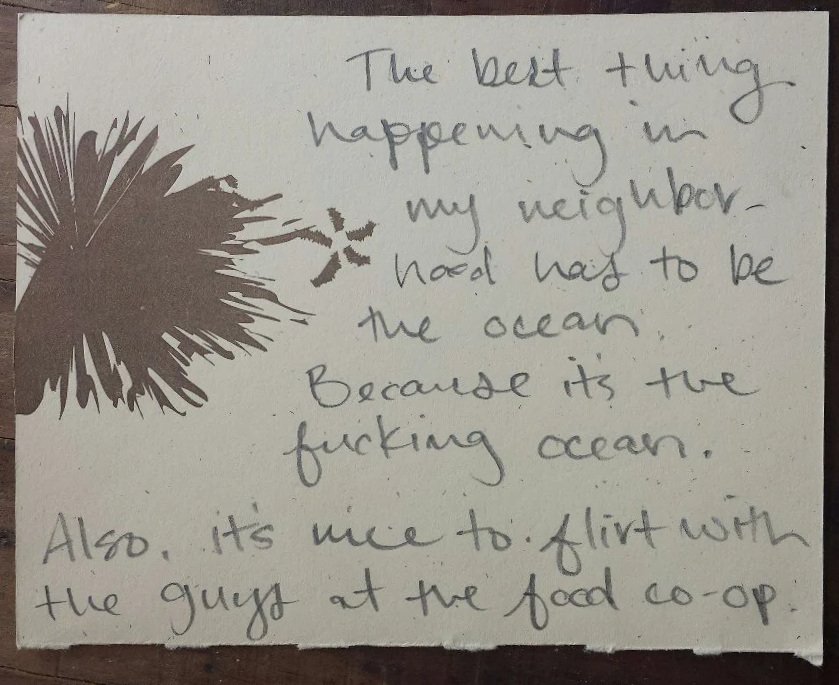 The best thing
happening in
my neighbor-
hood has to be
the ocean.
Because it's the
fucking ocean.
Also, it's nice to flirt with
the guys at the food co-op.